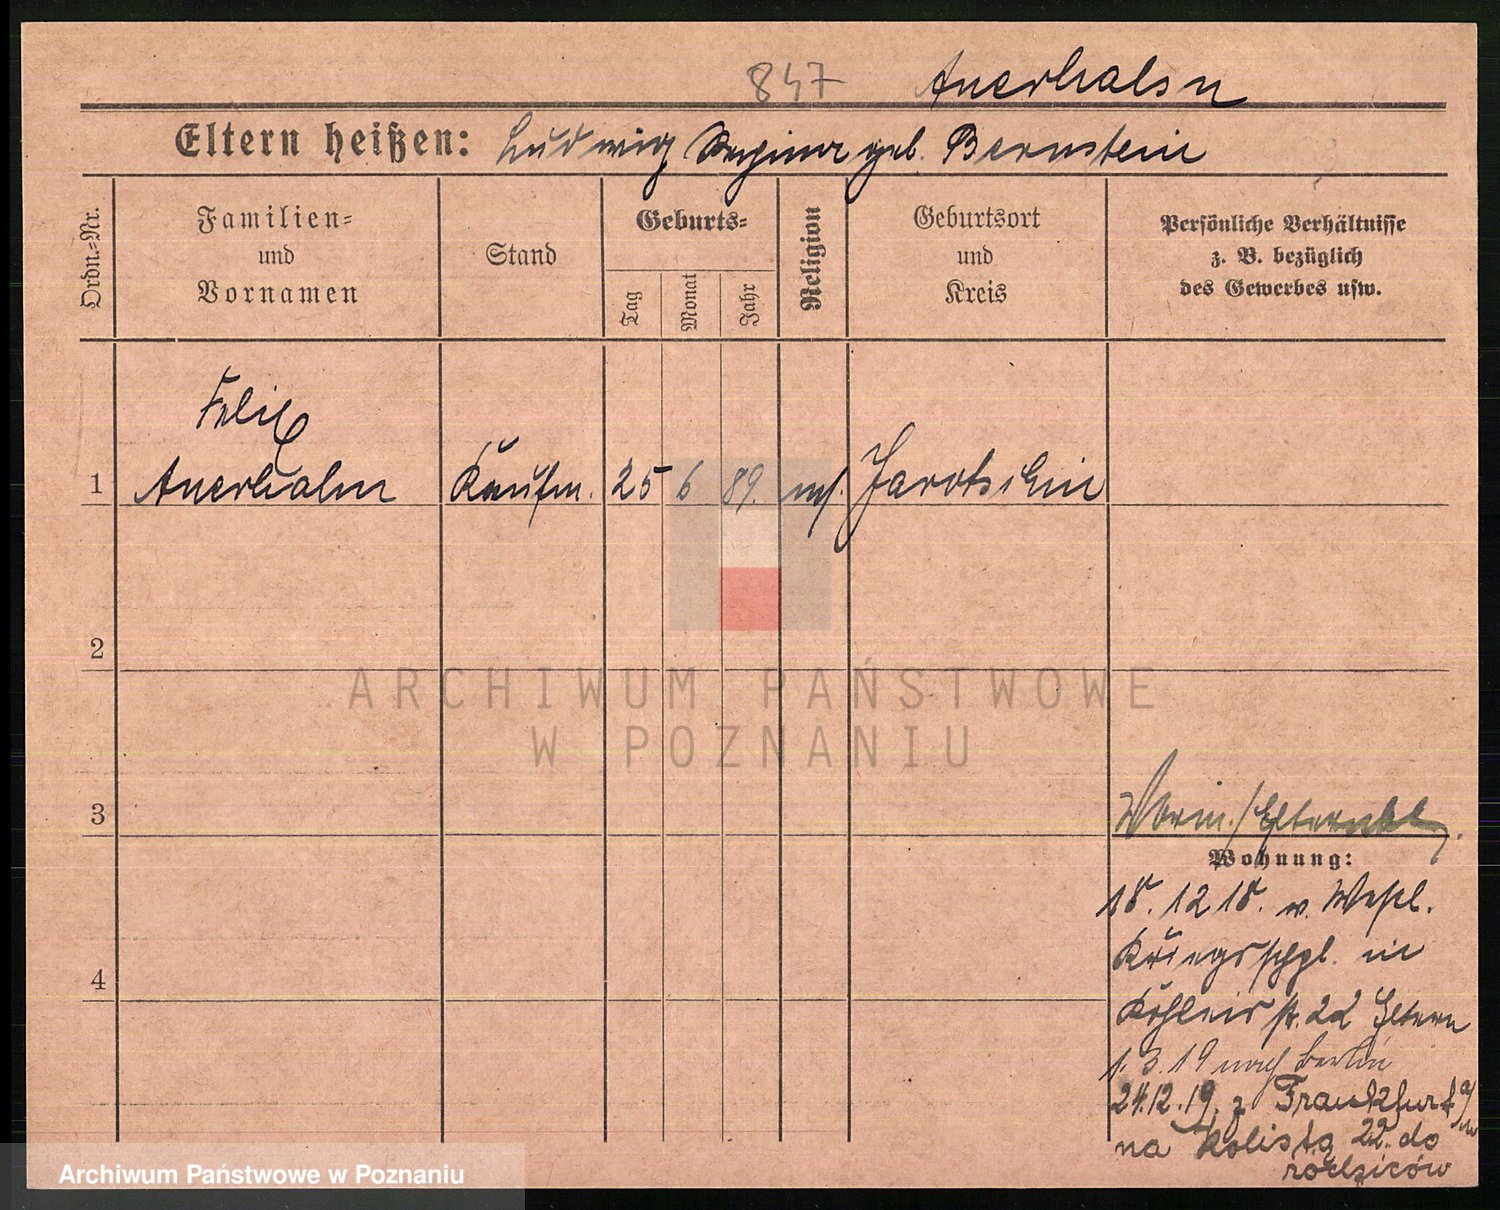 847 Auerhahn
Eltern heißen: Ludwig Regina geb. Bernstein
Ordn.=Nr.
Familien=
und
Vornamen
Stand
Geburts=
Tag
Monat
Jahr
Religion
Geburtsort
und
Kreis
Persönliche Verhältnisse
z. B. bezüglich
des Gewerbes usw.
Felix
1 Auerhahn Kaufm. 25 6 89. mos. Jarotschin
2
ARCHIWUM PAŃSTWOWE
W POZNANIU
3
Wohnung:
18. 12 18. v.
4
in
str. 22 Eltern
1. 3. 19 nach Berlin
24.12.19. z Frankfurt a/
na 22. do
rodziców
Archiwum Państwowe w Poznaniu